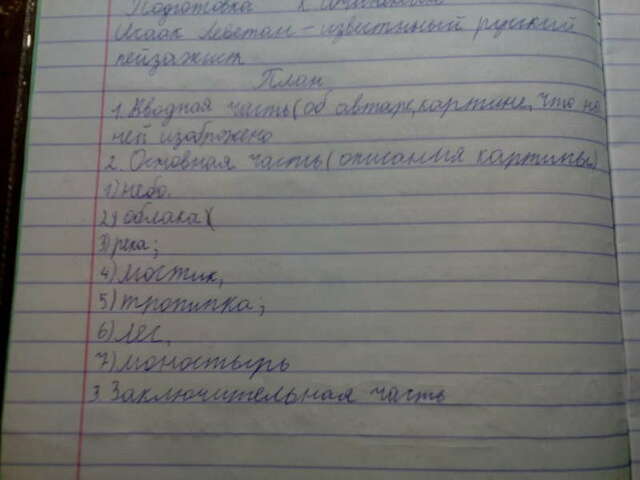 Подготовка к сочинению
Исаак Леветан - известный русский
пейзажист
План
1. Вводная часть (об автаре, картине, что на
ней изображено
2. Основная часть (описания картины)
1) небо.
2) облака (
3) река;
4) мостик,
5) тропинка;
6) лес,
7) моностырь
3. Заключительная часть